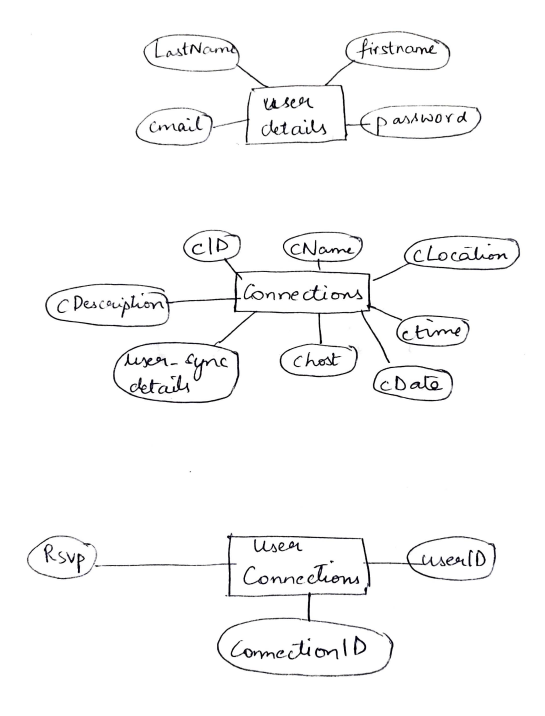 LastName
firstname
user
details
email
password
cID
cName
cLocation
cDescription
Connections
ctime
user_sync
details
chost
cDate
Rsvp
User
Connections
userID
ConnectionID